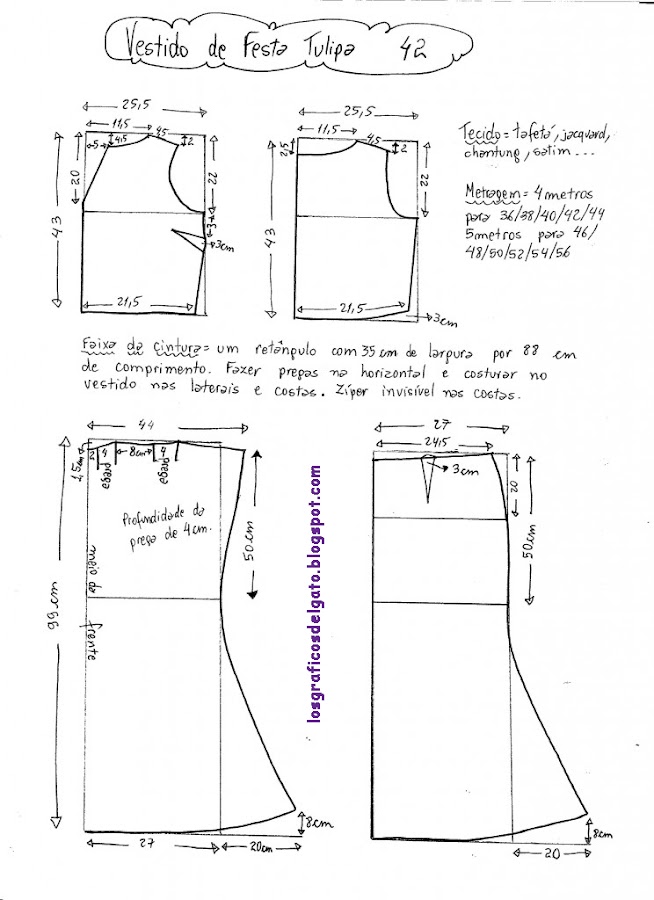 Vestido de Festa Tulipa 42
25,5
11,5
4,5
4,5
5
2
20
22
43
3,4
3cm
21,5
25,5
11,5
4,5
2
2,5
22
43
21,5
3cm
Tecido = tafetá, jacquard,
chantung, satim...
Metragem = 4 metros
para 36/38/40/42/44
5 metros para 46/
48/50/52/54/56
Faixa da cintura = um retângulo com 35 cm de largura por 88 cm
de comprimento. Fazer pregas na horizontal e costurar no
vestido nas laterais e costas. Zíper invisível nas costas.
44
1,5cm
2
4
prega
8cm
4
prega
Profundidade da
prega de 4cm.
50cm
99cm
meio da frente
8cm
27
20cm
losgraficosdelgato.blogspot.com
27
24,5
3cm
20
50cm
8cm
20